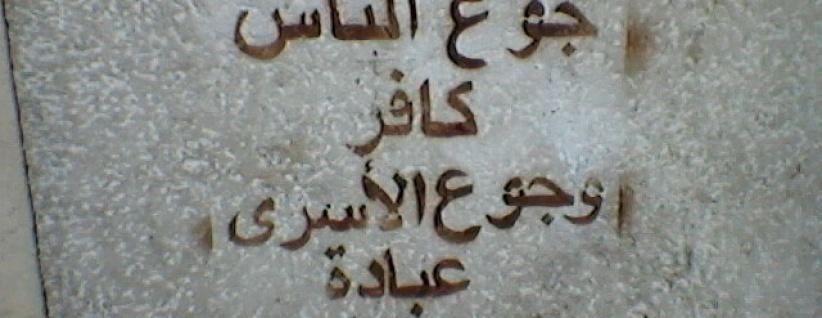 جوع الناس
كافر
وجوع الأسرى
عبادة